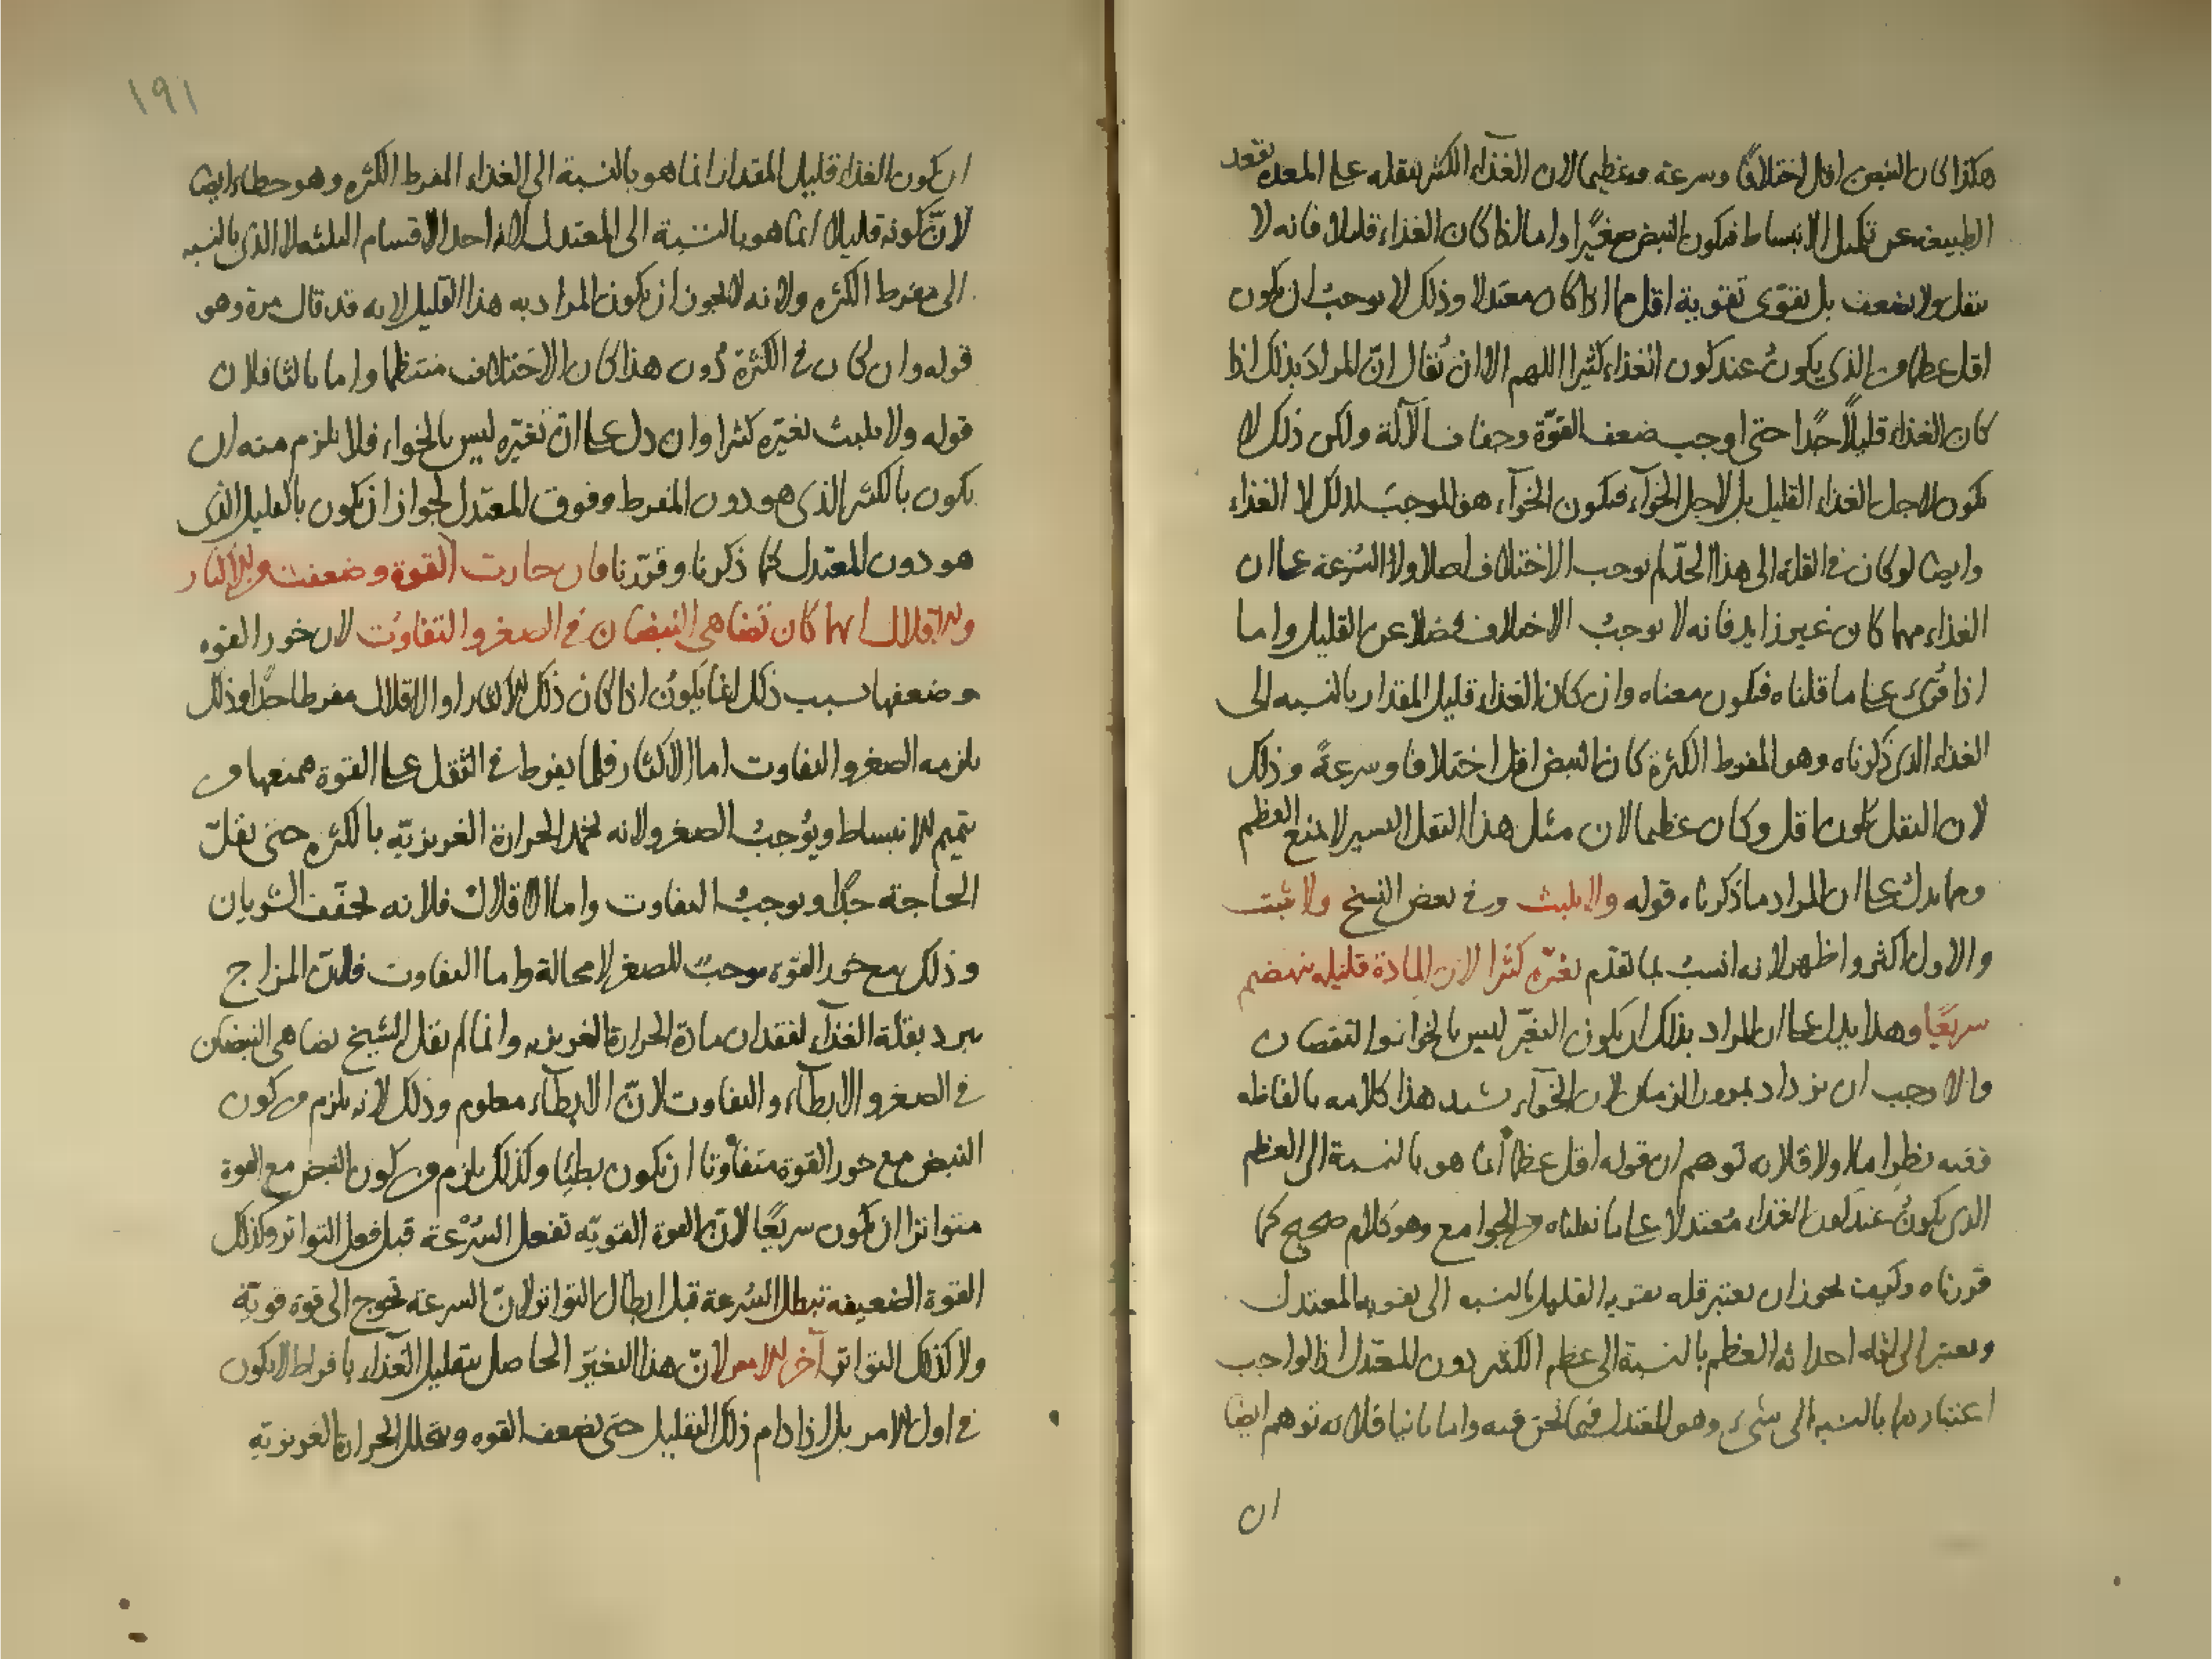 هكذا كان النبض اقل اختلافًا وسرعة وعظيما لان الغذآء الكثير بثقله على المعدة تقعد
الطبيعة عن تكميل الانبساط فيكون النبض صغيرًا واما اذا كان الغذاء قليلا فانه لا
يثقل ولا يضعف بل يقوى تقوية اقل مما اذا كان معتدلا وذلك لا يوجب ان يكون
اقل عظما من الذى يكون عند كون الغذاء كثيرا اللهم الا ان يُقال انّ المراد بذلك اذا
كان الغذاء قليلًا جدًا حتى اوجب ضعف القوّة وجفاف الآلة ولكن ذلك لا
يكون لاجل الغذاء القليل بل لاجل الخوآء فيكون الخوآء هو الموجب لذلك لا الغذاء
وايضا لو كان فى القلة الى هذا الحدّ لم يوجب الاختلاف اصلا ولا السُرعة على ان
الغذاء مهما كان غير زايد فانه لا يوجبُ الاختلاف فضلا عن القليل واما
اذا قرئ على ما قلناه فيكون معناه وان كان الغذاء قليل المقدار بالنسبه الى
الغذاء الذى ذكرناه وهو المفرط الكثرة كان النبض اقل اختلافا وسرعةً وذلك
لان الثقل يكون اقل وكان عظيما لان مثل هذا الثقل اليسير لا يمنع العظم
ومما يدل على ان المراد ما ذكرناه قوله ولا يلبث وفى بعض النسخ ولا يثبت
والاول اكثر واظهر لانه انسبُ بما تقدّم تغيّره كثيرا لان المادة قليله ينهضم
سريعًا وهذا يدل على ان المراد بذلك ان يكون التغيّر ليس بالخوا والنقصان
والا وجب ان يزداد بمرور الزمان لان الخوآء يشتد هذا كلامه بالفاظه
ففيه نظر اما اولا فلانه توهم ان قوله اقل عظمًا انما هو بالنسبة الى العظم
الذى يكونُ عند كون الغذاء مُعتدلا على ما نقلناه من الجوامع وهو كلام صحيح كما
قررناه وكيف يجوز ان يعتبر قلة تقوية القليل بالنسبه الى تقوية المعتدل
ويعتبر الى قلة احداثه العظم بالنسبة الى عظم الكثير دون المعتدل اذ الواجب
اعتبارهما بالنسبه الى شىء وهو المعتدل فيما نحن فيه واما ثانيا فلانه توهم ايضا
ان
١٩١
ان كون الغذاء قليل المقدار انما هو بالنسبة الى الغذاء المفرط الكثره وهو خطاء ايضا
لانّ كونه قليلا انما هو بالنسبة الى المعتدل لانه احد الاقسام الثلثه لا الذى بالنسبه
الى مفرط الكثره ولانه لا يجوز ان يكون المراد به هذا القليل لانه قد قال مرة وهو
قوله وان كان فى الكثرة دون هذا كان الاختلاف منتظما واما ثالثا فلان
قوله ولا يلبث تغيّره كثيرا وان دل على ان تغيّره ليس بالخواء فلا يلزم منه ان
يكون بالكثير الذى هو دون المفرط وفوق المعتدل لجواز ان يكون بالقليل الذى
هو دون المعتدل كما ذكرنا وقرّرنا فان خارت القوة وضعفت لاكثار
ولاقلال ايهما كان تضاهى النبضان فى الصغر والتفاوُت لان خور القوه
وضعفها بسبب ذلك انما يكون اذا كان ذلك الاكثار او الاقلال مفرطا جدًا وذلك
يلزمه الصغر والتفاوت اما الاكثار فلما يفرط فى الثقل على القوة فيمنعها من
تتميم الانبساط ويُوجبُ الصغر ولانه يخمد الحرارة الغريزيّه بالكثره حتى تقلّ
الحاجة جدًا ويوجبُ التفاوت واما الاقلال فلانه يجفّف الشريان
وذلك مع خور القوة يوجبُ للصغر لا محالة واما التفاوت فلانّ المزاج
يبرد بقلة الغذآء لفقدان مادة الحرارة الغريزيه وانما لم يقل الشيخ تضاهى النبضان
فى الصغر والابطآء والتفاوت لانّ الابطآء معلوم وذلك لانه يلزم من كون
النبض مع خور القوة متفاوتا ان يكون بطيئا وكذلك يلزم من كون النبض مع القوة
متواترا ان يكون سريعًا لان القوة القويّه تفعل السُرْعة قبل فعل التواتر وكذلك
القوة الضعيفه تبطل السُرعة قبل ابطال التواتر لانّ السرعة تحوج الى قوة قويّة
ولا كذلك التواتر آخر الامر لانّ هذا التغيّر الحاصل بتقليل الغذآء بافراط لا يكون
فى اول الامر بل اذا دام ذلك التقليل حتى يضعف القوه ويحلل الحرارة الغريزيّة